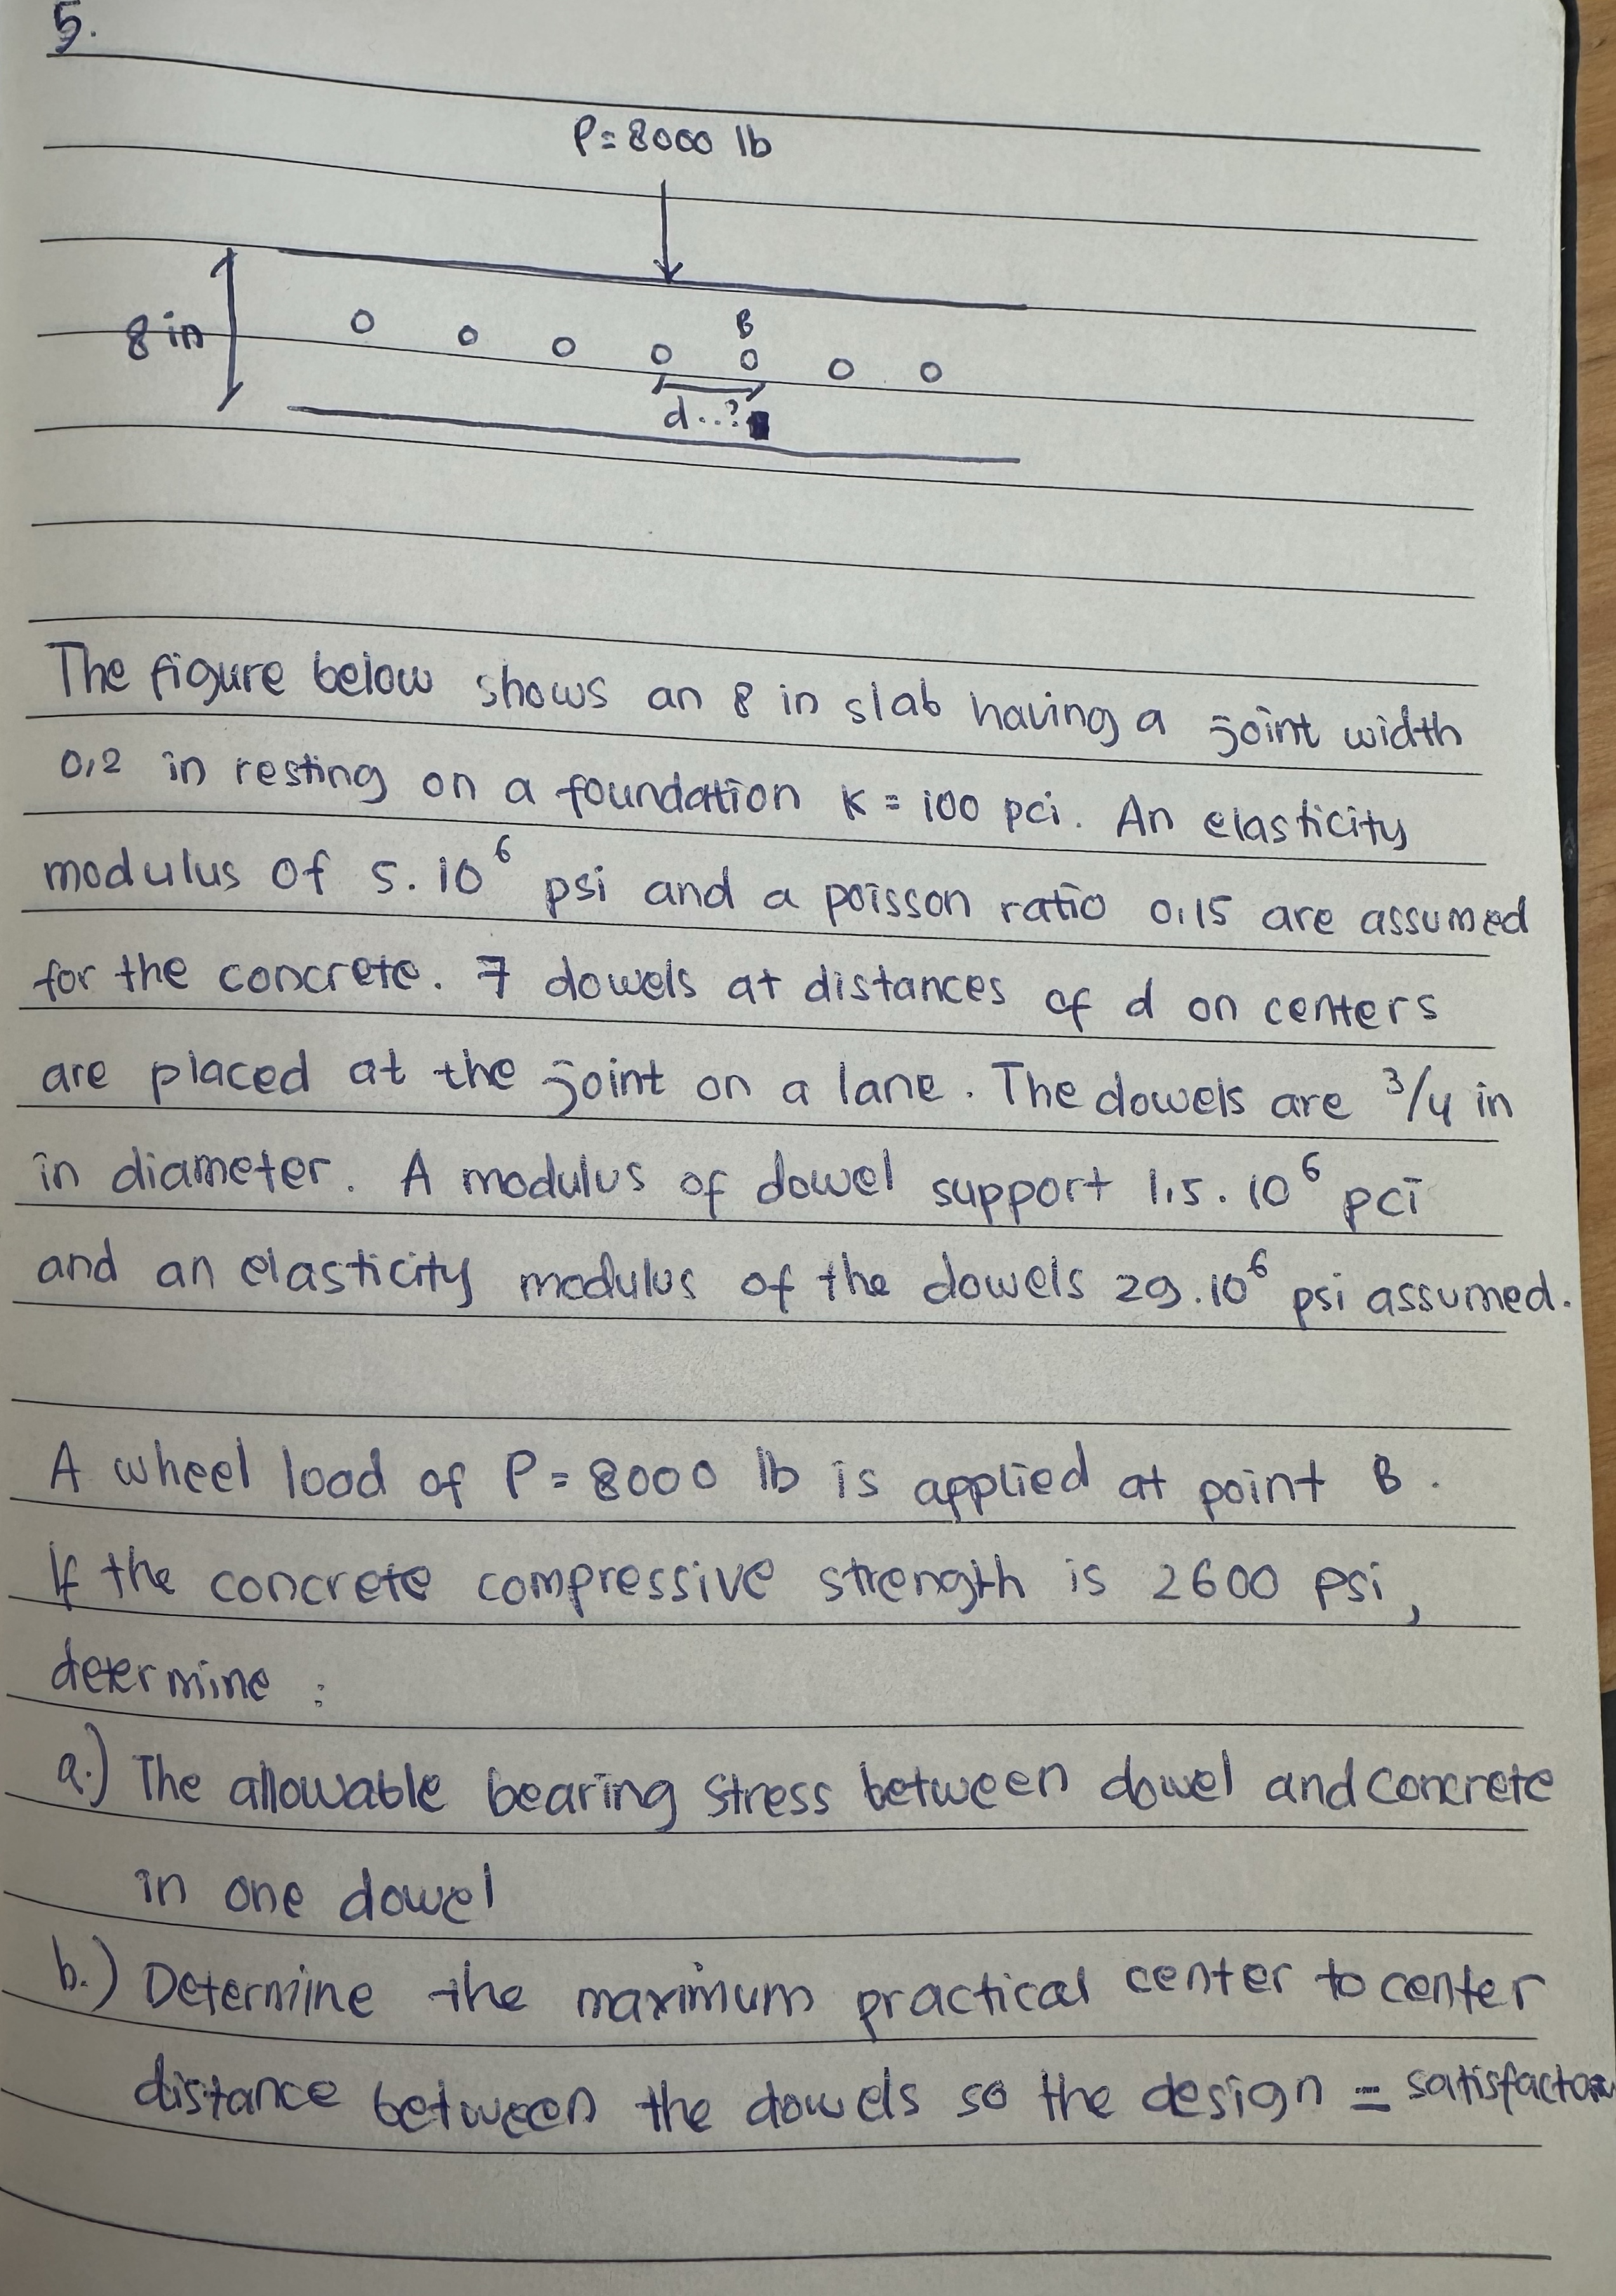 5.
P=8000 lb
8 in
B
d..?
The figure below shows an 8 in slab having a joint width
0,2 in resting on a foundation K = 100 pci. An elasticity
modulus of 5.10⁶ psi and a poisson ratio 0,15 are assumed
for the concrete. 7 dowels at distances of d on centers
are placed at the joint on a lane. The dowels are 3/4 in
in diameter. A modulus of dowel support 1,5.10⁶ pci
and an elasticity modulus of the dowels 29.10⁶ psi assumed.
A wheel load of P=8000 lb is applied at point B.
If the concrete compressive strength is 2600 psi,
determine :
a.) The allowable bearing stress between dowel and concrete
in one dowel
b.) Determine the maximum practical center to center
distance between the dowels so the design =